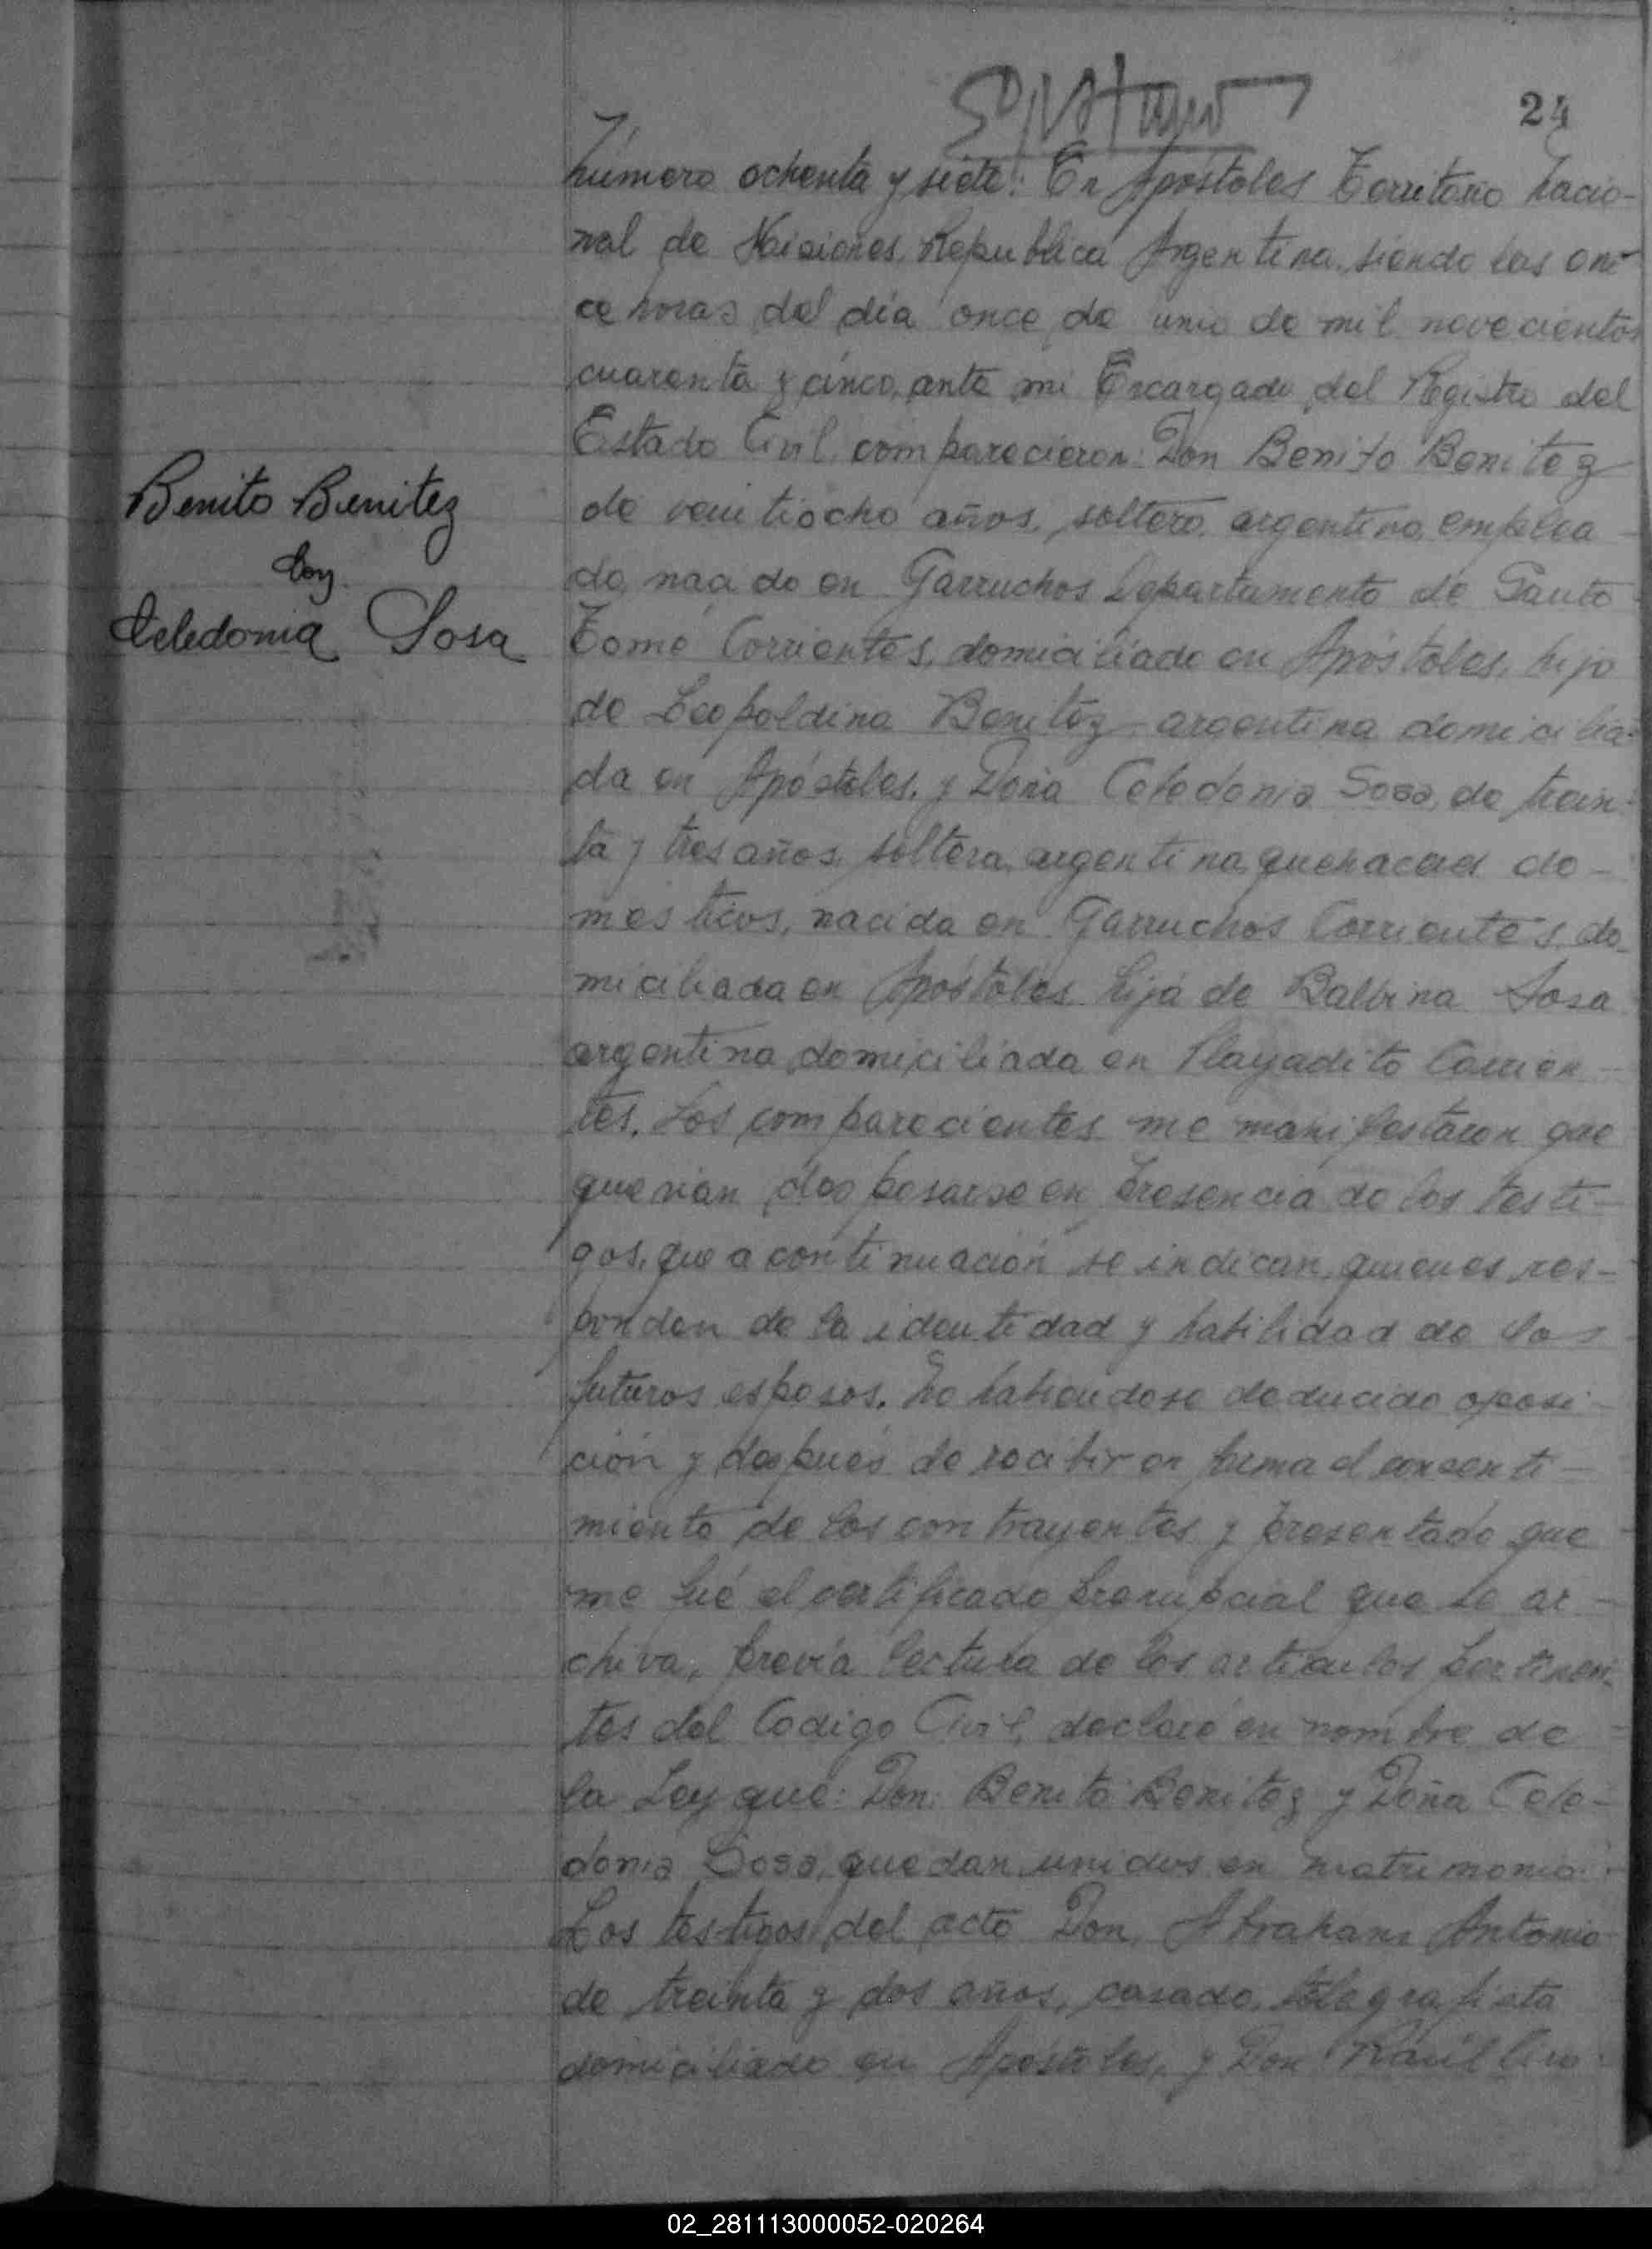 24
Número ochenta y siete: En Apóstoles Territorio Nacio-
nal de Misiones, Republica Argentina, siendo las on-
ce horas del día once de unio de mil novecientos
cuarenta y cinco, ante mi Encargado del Registro del
Estado Civil, comparecieron: Don Benito Benitez
de veintiocho años, soltero, argentino, emplea-
do, nacido en Garruchos Departamento de Santo
Tomé Corrientes, domiciliado en Apóstoles, hijo
de Leopoldina Benitez, argentina domicilia-
da en Apóstoles, y Doña Celedonia Sosa, de trein-
ta y tres años, soltera, argentina, quehacer do-
mesticos, nacida en Garruchos Corrientes, do-
miciliada en Apóstoles hija de Balbina Sosa
argentina, domiciliada en Playadito Corrien-
tes. Los comparecientes me manifestaron que
querian desposarse en presencia de los testi-
gos, que a continuación se indican, quienes res-
ponden de la identidad y habilidad de los
futuros esposos. No habiendose deducido oposi-
ción y después de recibir en forma el consenti-
miento de los contrayentes y presentado que
me fué el certificado prenupcial que se ar-
chiva, previa lectura de los articulos pertinen-
tes del Codigo Civil, declaré en nombre de
la Ley que: Don: Benito Benitez y Doña Cele-
donia Sosa, quedan unidos en matrimonio.
Los testigos del acto Don, Abraham Antonio
de treinta y dos años, casado, telegrafista
domiciliado en Apóstoles, y Don Raúl
Benito Benitez
Con
Celedonia Sosa
02_281113000052-020264